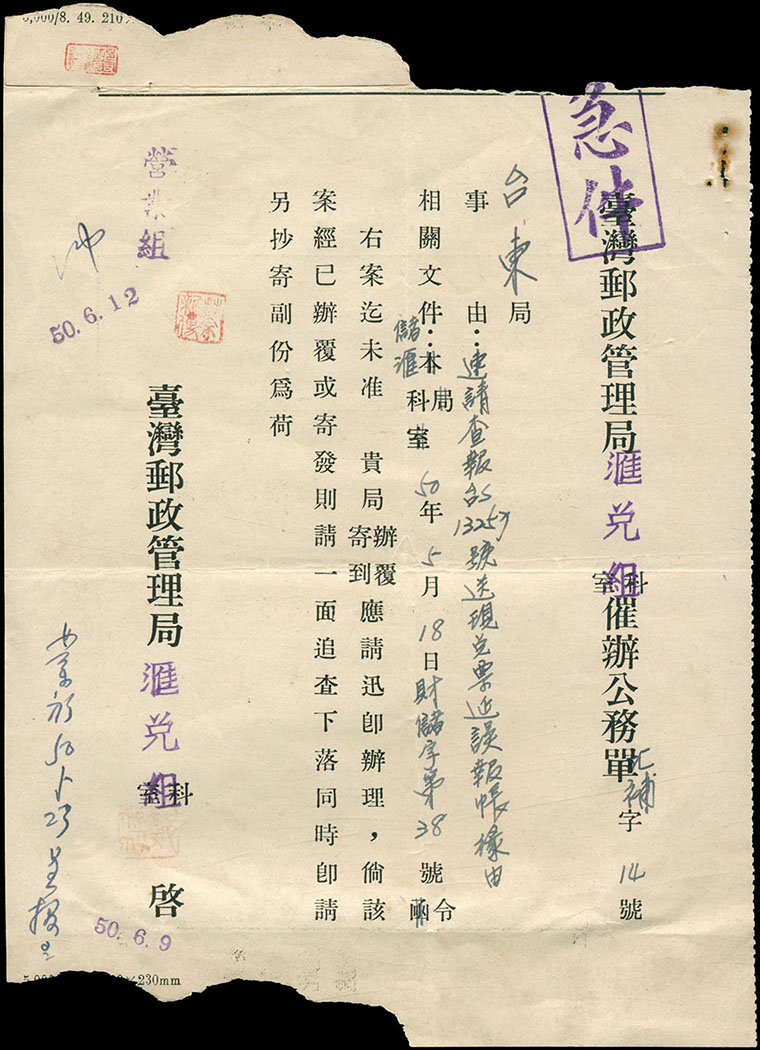 5,000/8. 49. 210
急件
臺灣郵政管理局滙兌組科室催辦公務單
字14號
台東局
事由：速請查報
號送現兌票近誤報帳樣由
相關文件：本局儲滙科室50年5月18日財儲字第38號令函
右案迄未准 貴局辦覆寄到應請迅卽辦理，倘該
案經已辦覆或寄發則請一面追查下落同時卽請
另抄寄副份爲荷
臺灣郵政管理局滙兌組科室 啓
50. 6. 9
營業組
50. 6. 12
230mm